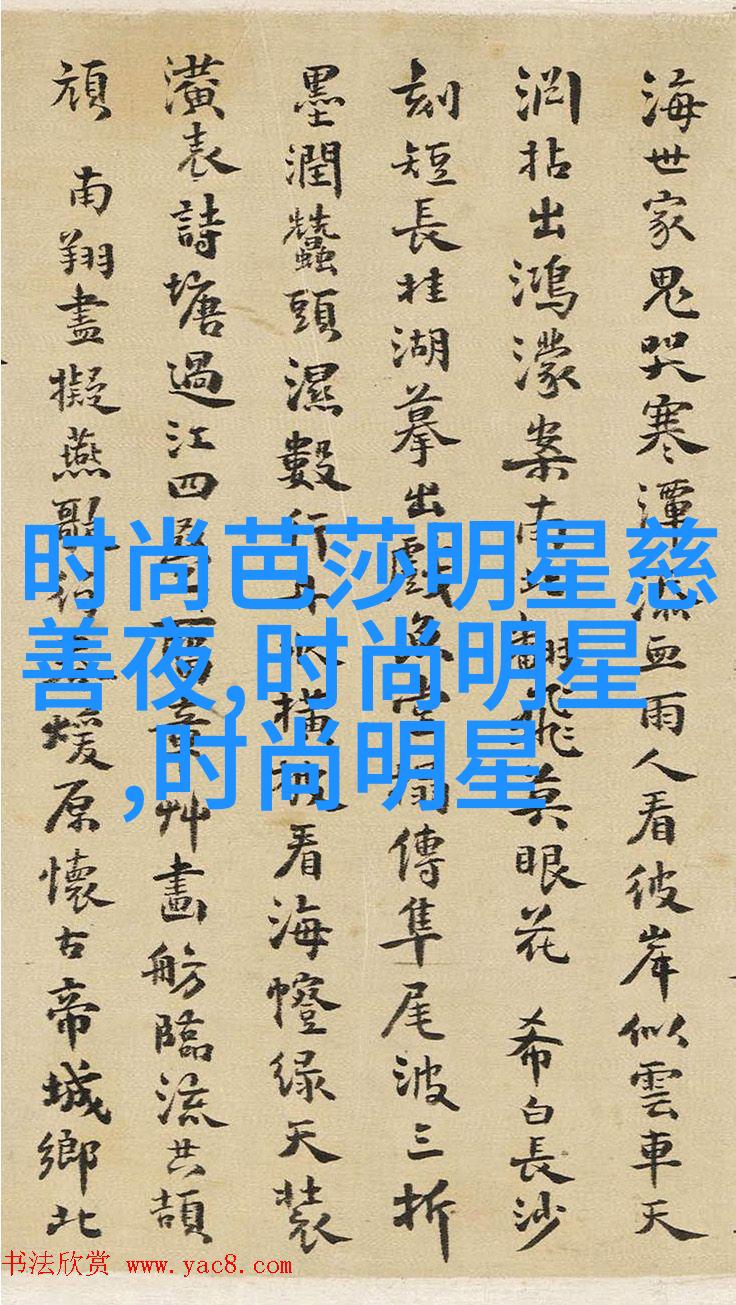 海世家鬼哭寒潭血雨人看彼岸似雲車天
渕拈出鴻濛案南飛莫眼花 希白長沙
刻短長桂湖摹出戲魚傳隼尾波三折
墨潤蠶頭濕數行橫看海幢綠天裝
潢表詩塘過江四章艸畫舫臨流共頡
頏 南翔盡擬燕歌煖原懷古帝城鄉北
时尚芭莎明星慈
善夜,时尚明星
,时尚明星
书法欣赏 www.yac8.com